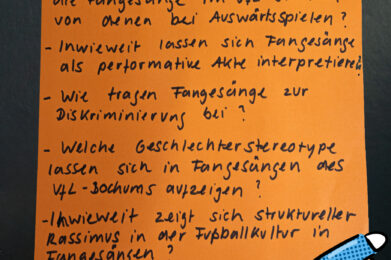 die Fangesänge im
von denen bei Auswärtsspielen?
- Inwieweit lassen sich Fangesänge
als performative Akte interpretieren?
- Wie tragen Fangesänge zur
Diskriminierung bei?
- Welche Geschlechterstereotype
lassen sich in Fangesängen des
VfL-Bochums aufzeigen?
- Inwieweit zeigt sich struktureller
Rassismus in der Fußballkultur in
Fangesängen?